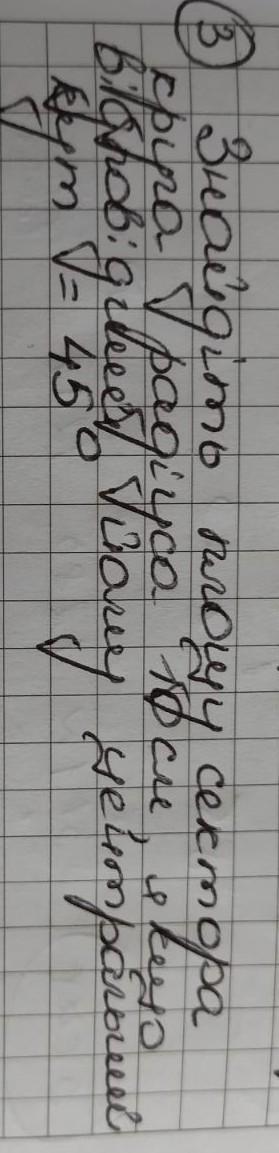 ③ Знайдіть площу сектора
круга радіуса 10 см якщо
відповідний йому центральний
кут = 45°